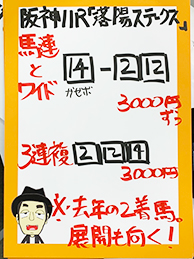 阪神11R「落陽ステークス」
馬連と
ワイド
14-2 12
ガゼボ
3000円
ずつ
3連複 2 12 14
3000円
※去年の2着馬。
展開も向く!